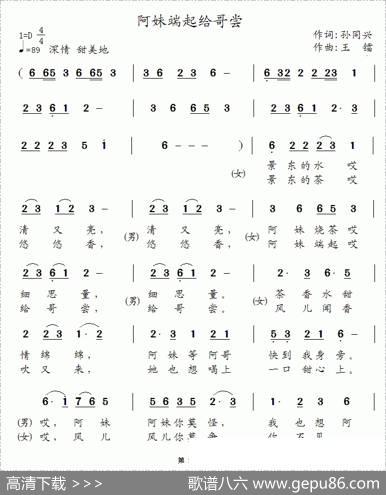 阿妹端起给哥尝
1=D 4/4
♩=89 深情 甜美地
作词:孙同兴
作曲:王 镭
( 6 65 3 6 65 3 | 3 6 2 3 6 - | 6 32 2 23 3 |
2 3 6 1 2 - | 3 6 2 3 6 - | 2 3 6 1 2 - |
2 2 2 23 5 1 | 6 - - - ) | 6 2 2 23 1
(女) 景 东的水 哎
景 东的茶 哎
2 3 1 2 3 - | 2 3 1 2 3 - | 2 3 2 1 2 1
清 又 亮, (男) 清 又 亮, (女) 阿 妹 烧茶 哎
悠 悠 香, 悠 悠 香, 阿 妹 端起 哎
2 3 6 1 2 - | 2 3 6 1 2 - | 2· 3 6· 5
细 思 量, (男) 细 思 量。 (女) 茶 香水 甜
给 哥 尝, 给 哥 尝。 风 儿闻 香
2 2 3 1· 2 | 2· 3 1 2 1 | 5 3 2 1 3 -
情 绵 绵, 阿 妹 等 阿哥 快到 我身 旁。
吹 又 来, 她 也 想 喝上 一口 甜心 上。
6· 1 7 6 5 | 6 35 6 3 - | 2 1 2 3
(男) 哎, 阿 妹 阿妹你莫 怪, 我 也 想 阿
(女) 哎, 风 儿
高清下载 >>>
歌谱八六 www.gepu86.com